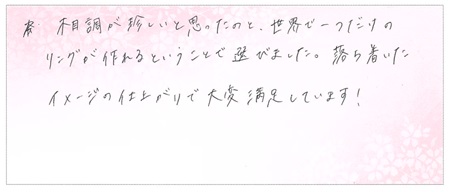 木目調が珍しいと思ったのと、世界で一つだけの
リングが作れるということで選びました。落ち着いた
イメージの仕上がりで大変満足しています！